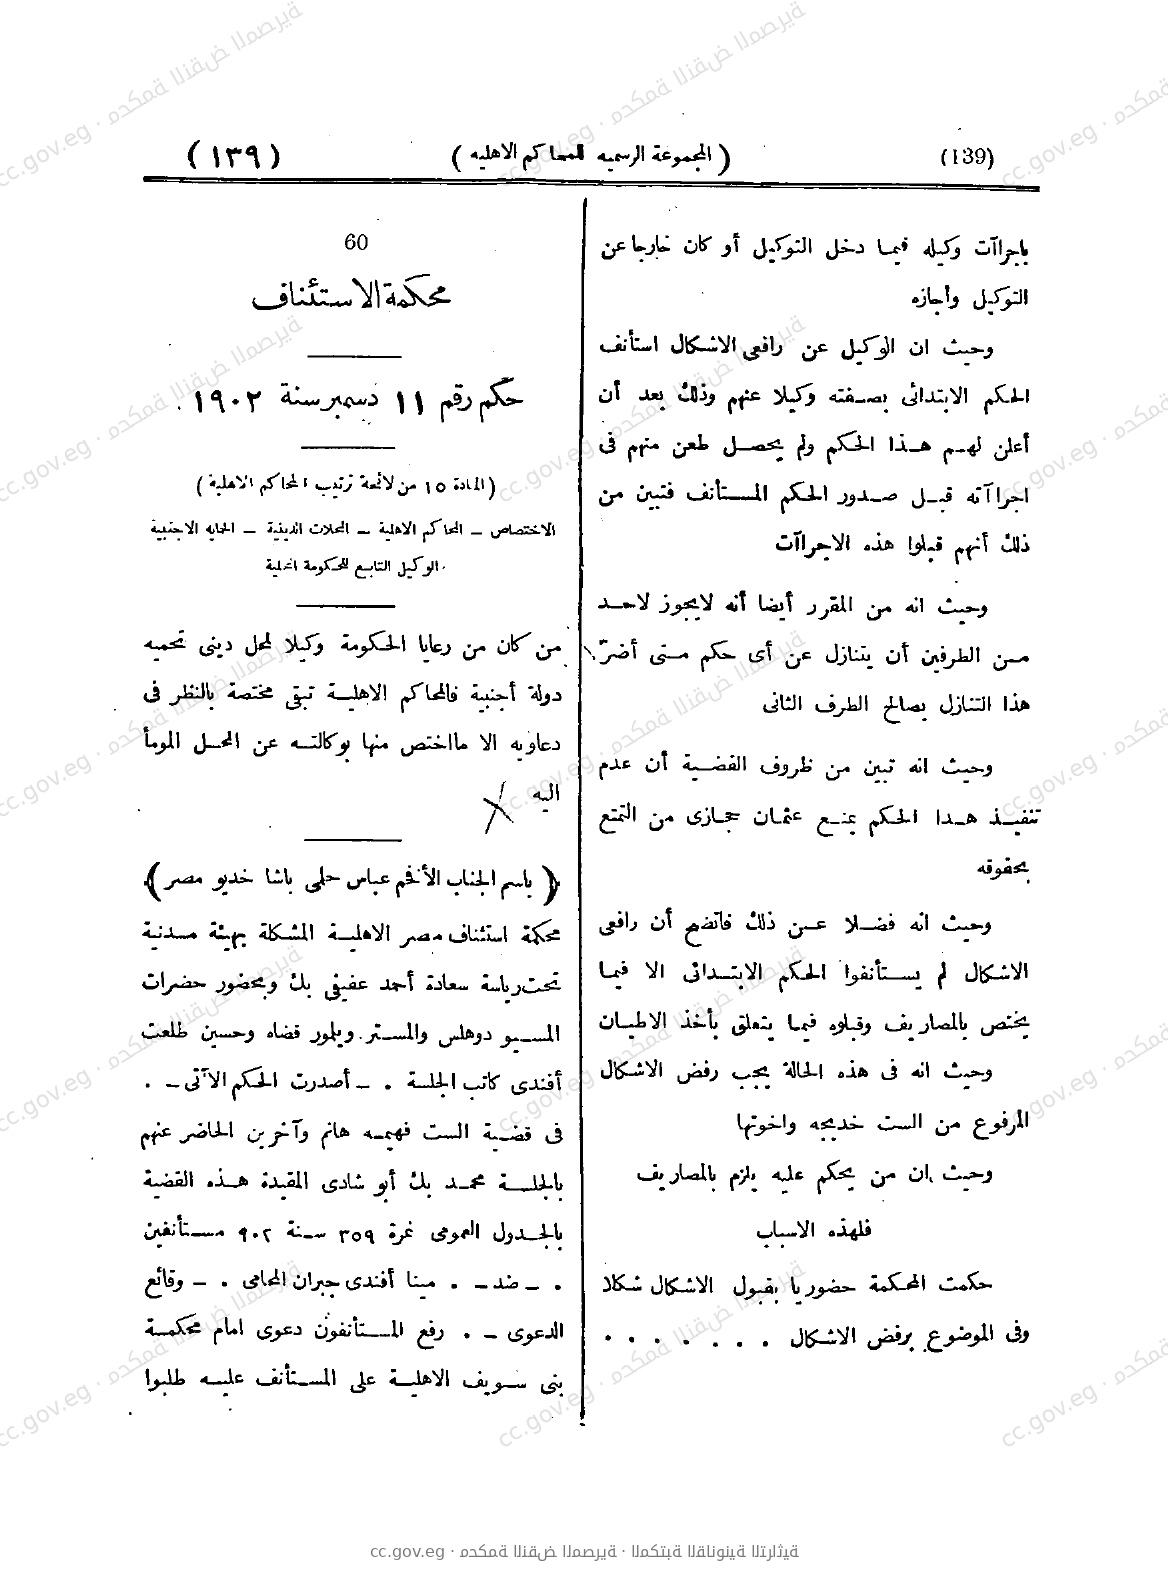 (139) ( المجموعة الرسميه للمحاكم الاهليه ) ( ١٣٩ )
باجراآت وكيله فيما دخل التوكيل أو كان خارجا عن
التوكيل وأجازه
وحيث ان الوكيل عن رافعى الاشكال استأنف
الحكم الابتدائى بصفته وكيلا عنهم وذلك بعد أن
أعلن لهم هذا الحكم ولم يحصل طعن منهم فى
اجراآته قبل صدور الحكم المستأنف فتبين من
ذلك أنهم قبلوا هذه الاجراآت
وحيث انه من المقرر أيضا أنه لايجوز لاحد
من الطرفين أن يتنازل عن أى حكم متى أضرّ
هذا التنازل بصالح الطرف الثانى
وحيث انه تبين من ظروف القضية أن عدم
تنفيذ هذا الحكم يمنع عثمان حجازى من التمتع
بحقوقه
وحيث انه فضلا عن ذلك فاتضح أن رافعى
الاشكال لم يستأنفوا الحكم الابتدائى الا فيما
يختص بالمصاريف وقبلوه فيما يتعلق بأخذ الاطيان
وحيث انه فى هذه الحالة يجب رفض الاشكال
المرفوع من الست خديجه واخوتها
وحيث ان من يحكم عليه يلزم بالمصاريف
فلهذه الاسباب
حكمت المحكمة حضوريا بقبول الاشكال شكلا
وفى الموضوع برفض الاشكال . . . . . . .
60
محكمة الاستئناف
حكم رقم ١١ دسمبر سنة ١٩٠٢
( المادة ١٥ من لائحة ترتيب المحاكم الاهلية )
الاختصاص – المحاكم الاهلية – المحلات الدينية – الحمايه الاجنبية
الوكيل التابع للحكومة المحلية
من كان من رعايا الحكومة وكيلا لمحل دينى تحميه
دولة أجنبية فالمحاكم الاهلية تبقى مختصة بالنظر فى
دعاويه الا مااختص منها بوكالته عن المحل المومأ
اليه
( باسم الجناب الأفخم عباس حلمى باشا خديو مصر )
محكمة استئناف مصر الاهلية المشكلة بهيئة مدنية
تحت رياسة سعادة أحمد عفيفى بك وبحضور حضرات
المسيو دوهلس والمستر ويلمور قضاه وحسين طلعت
أفندى كاتب الجلسة . – أصدرت الحكم الآتى – .
فى قضية الست فهيمه هانم وآخرين الحاضر عنهم
بالجلسة محمد بك أبو شادى المقيدة هذه القضية
بالجدول العمومى نمرة ٣٥٩ سنة ٩٠٢ مستأنفين
. – ضد – . مينا أفندى جبران المحامى . – وقائع
الدعوى – . رفع المستأنفون دعوى امام محكمة
بنى سويف الاهلية على المستأنف عليه طلبوا
cc.gov.eg · محكمة النقض المصرية · المكتبة القانونية التراثية